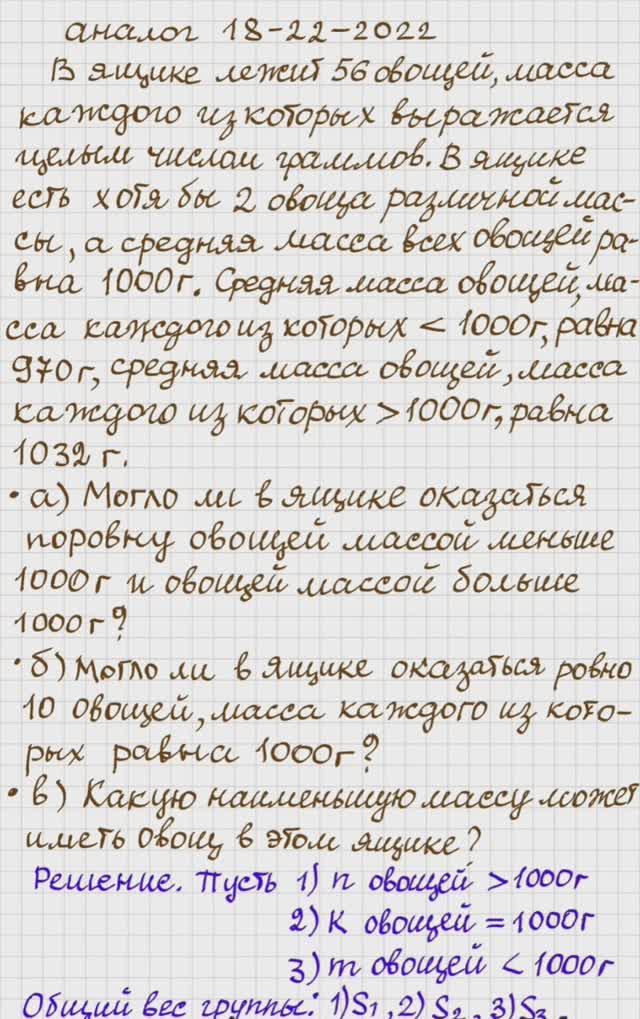 аналог 18-22-2022
В ящике лежит 56 овощей, масса
каждого из которых выражается
целым числом граммов. В ящике
есть хотя бы 2 овоща различной мас-
сы, а средняя масса всех овощей ра-
вна 1000г. Средняя масса овощей, ма-
сса каждого из которых < 1000г, равна
970г, средняя масса овощей, масса
каждого из которых > 1000г, равна
1032 г.
• а) Могло ли в ящике оказаться
поровну овощей массой меньше
1000г и овощей массой больше
1000г?
• б) Могло ли в ящике оказаться ровно
10 овощей, масса каждого из кото-
рых равна 1000г?
• в) Какую наименьшую массу может
иметь овощ в этом ящике?
Решение. Пусть 1) n овощей > 1000г
2) К овощей = 1000г
3) m овощей < 1000г
Общий вес группы: 1) S1, 2) S2, 3) S3.